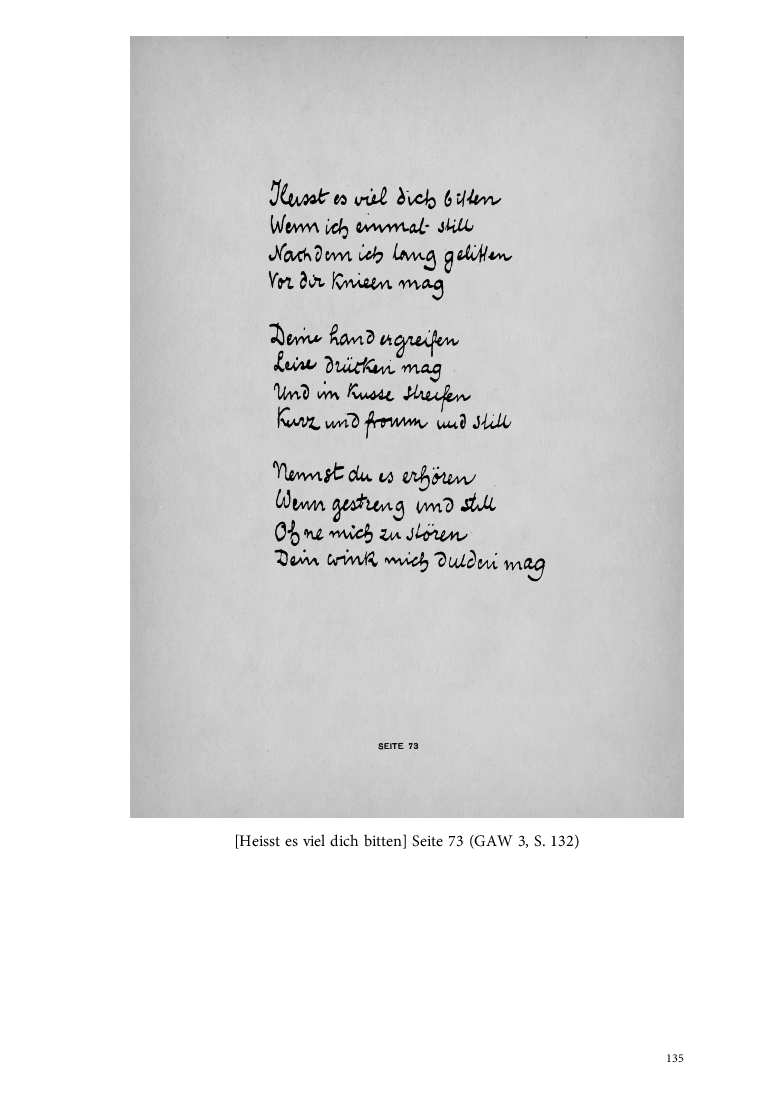 Heisst es viel dich bitten
Wenn ich einmal still
Nachdem ich lang gelitten
Vor dir knieen mag
Deine hand ergreifen
Leise drücken mag
Und im kusse streifen
Kurz und fromm und still
Nennst du es erhören
Wenn gestreng und still
Ohne mich zu stören
Dein wink mich dulden mag
SEITE 73
[Heisst es viel dich bitten] Seite 73 (GAW 3, S. 132)
135